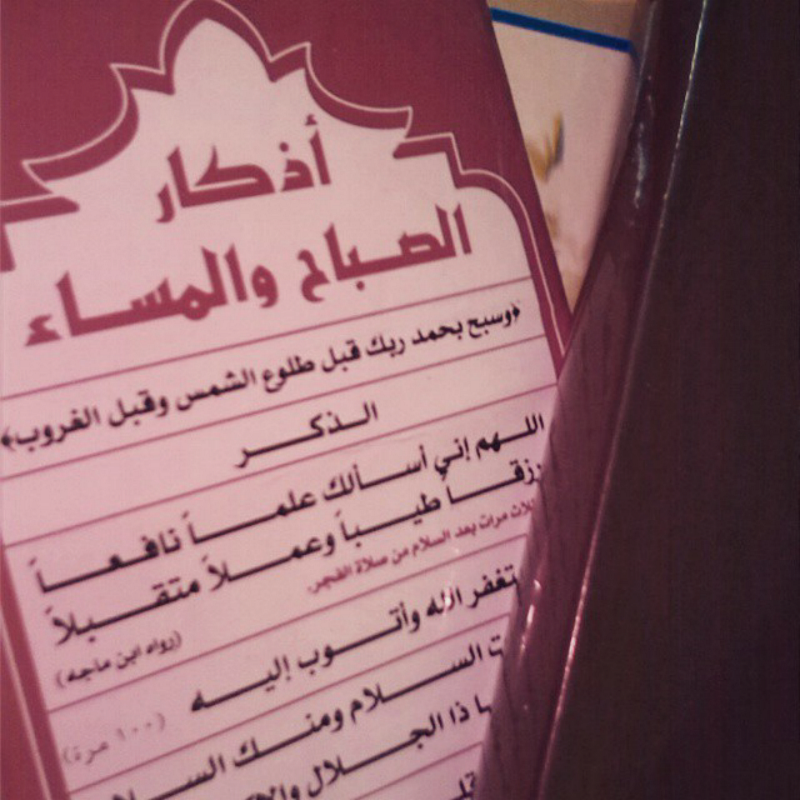 أذكار
الصباح والمساء
﴿وسبح بحمد ربك قبل طلوع الشمس وقبل الغروب﴾
الذكر
اللهم إني أسألك علماً نافعاً
رزقاً طيباً وعملاً متقبلاً
ثلاث مرات بعد السلام من صلاة الفجر
(رواه ابن ماجه)
الله وأتوب إليه
(١٠٠ مرة)
السلام ومنك
ذا الجلال